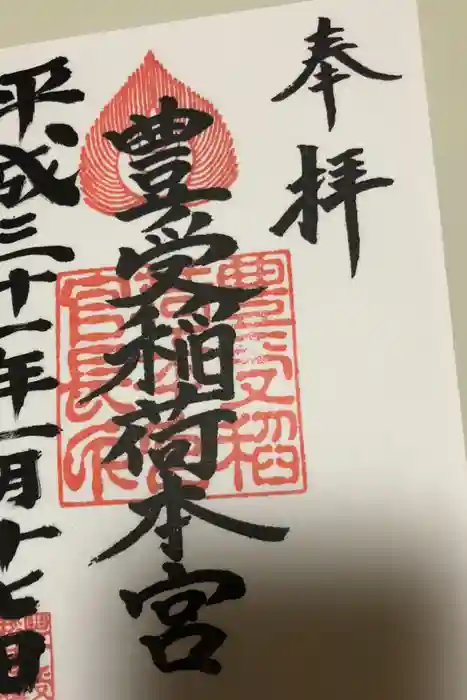 奉拝
豊受稲荷本宮
平成三十一年一月十七日